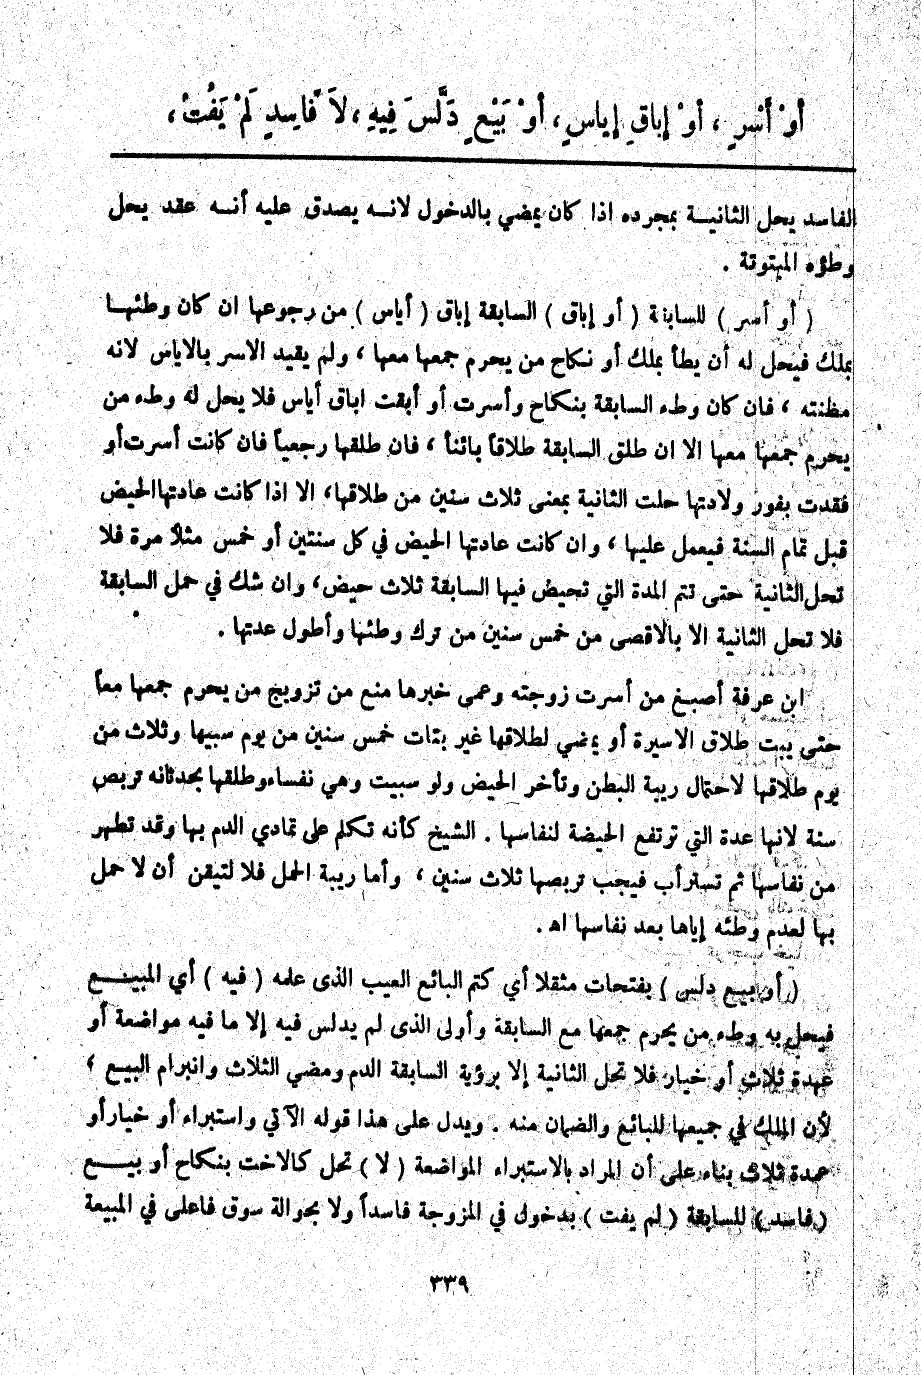 أَوْ أَسْرٍ ، أَوْ إِبَاقِ إِيَاسٍ ، أَوْ بَيْعٍ دَلَّسَ فِيهِ ، لاَ فَاسِدٍ لَمْ يَفُتْ ،
الفاسد يحل الثانيــة بمجرده اذا كان يمضي بالدخول لانــه يصدق عليه أنــه عقد يحل
وطؤه المبتوتة .
( أو أسر ) للسابقة ( أو إباق ) السابقة إباق ( أياس ) من رجوعها ان كان وطئهــا
بملك فيحل له أن يطأ بملك أو نكاح من يحرم جمعها معها ، ولم يقيد الاسر بالاياس لانه
مظنته ، فان كان وطء السابقة بنكاح وأسرت أو أبقت اباق أياس فلا يحل له وطء من
يحرم جمعها معها الا ان طلق السابقة طلاقاً بائناً ، فان طلقها رجعياً فان كانت أسرت أو
فقدت بفور ولادتها حلت الثانية بمعنى ثلاث سنين من طلاقها، الا اذا كانت عادتها الحيض
قبل تمام السنة فيعمل عليها ، وان كانت عادتها الحيض في كل سنتين أو خمس مثلاً مرة فلا
تحل الثانية حتى تتم المدة التي تحيض فيها السابقة ثلاث حيض، وان شك في حمل السابقة
فلا تحل الثانية الا بالاقصى من خمس سنين من ترك وطئها وأطول عدتها .
ابن عرفة أصبغ من أسرت زوجته وعمى خبرها منع من تزويج من يحرم جمعها معاً
حتى يبت طلاق الاسيرة أو يمضي لطلاقها غير بتات خمس سنين من يوم سبيها وثلاث من
يوم طلاقها لاحتمال ريبة البطن وتأخر الحيض ولو سبيت وهي نفساء وطلقها بحدثانه تربص
سنة لانها عدة التي ترتفع الحيضة لنفاسها . الشيخ كأنه تكلم على تمادي الدم بها وقد تطهر
من نفاسها ثم تسترأب فيجب تربصها ثلاث سنين ، وأما ريبة الحمل فلا لتيقن أن لا حمل
بها لعدم وطئه إياها بعد نفاسها اه .
( أو بيع دلس ) بفتحات مثقلا أي كتم البائع العيب الذى علمه ( فيه ) أي المبيــع
فيحل به وطء من يحرم جمعها مع السابقة وأولى الذى لم يدلس فيه إلا ما فيه مواضعة أو
عهدة ثلاث أو خيار فلا تحل الثانية إلا برؤية السابقة الدم ومضي الثلاث وانبرام البيع ،
لأن الملك في جميعها للبائع والضمان منه . ويدل على هذا قوله الآتي واستبراء أو خيار أو
عهدة ثلاث بناء على أن المراد بالاستبراء المواضعة ( لا ) تحل كالاخت بنكاح أو بيــع
( فاسد ) للسابقة ( لم يفت ) بدخول في المزوجة فاسداً ولا بحوالة سوق فاعلى في المبيعة
٣٣٩